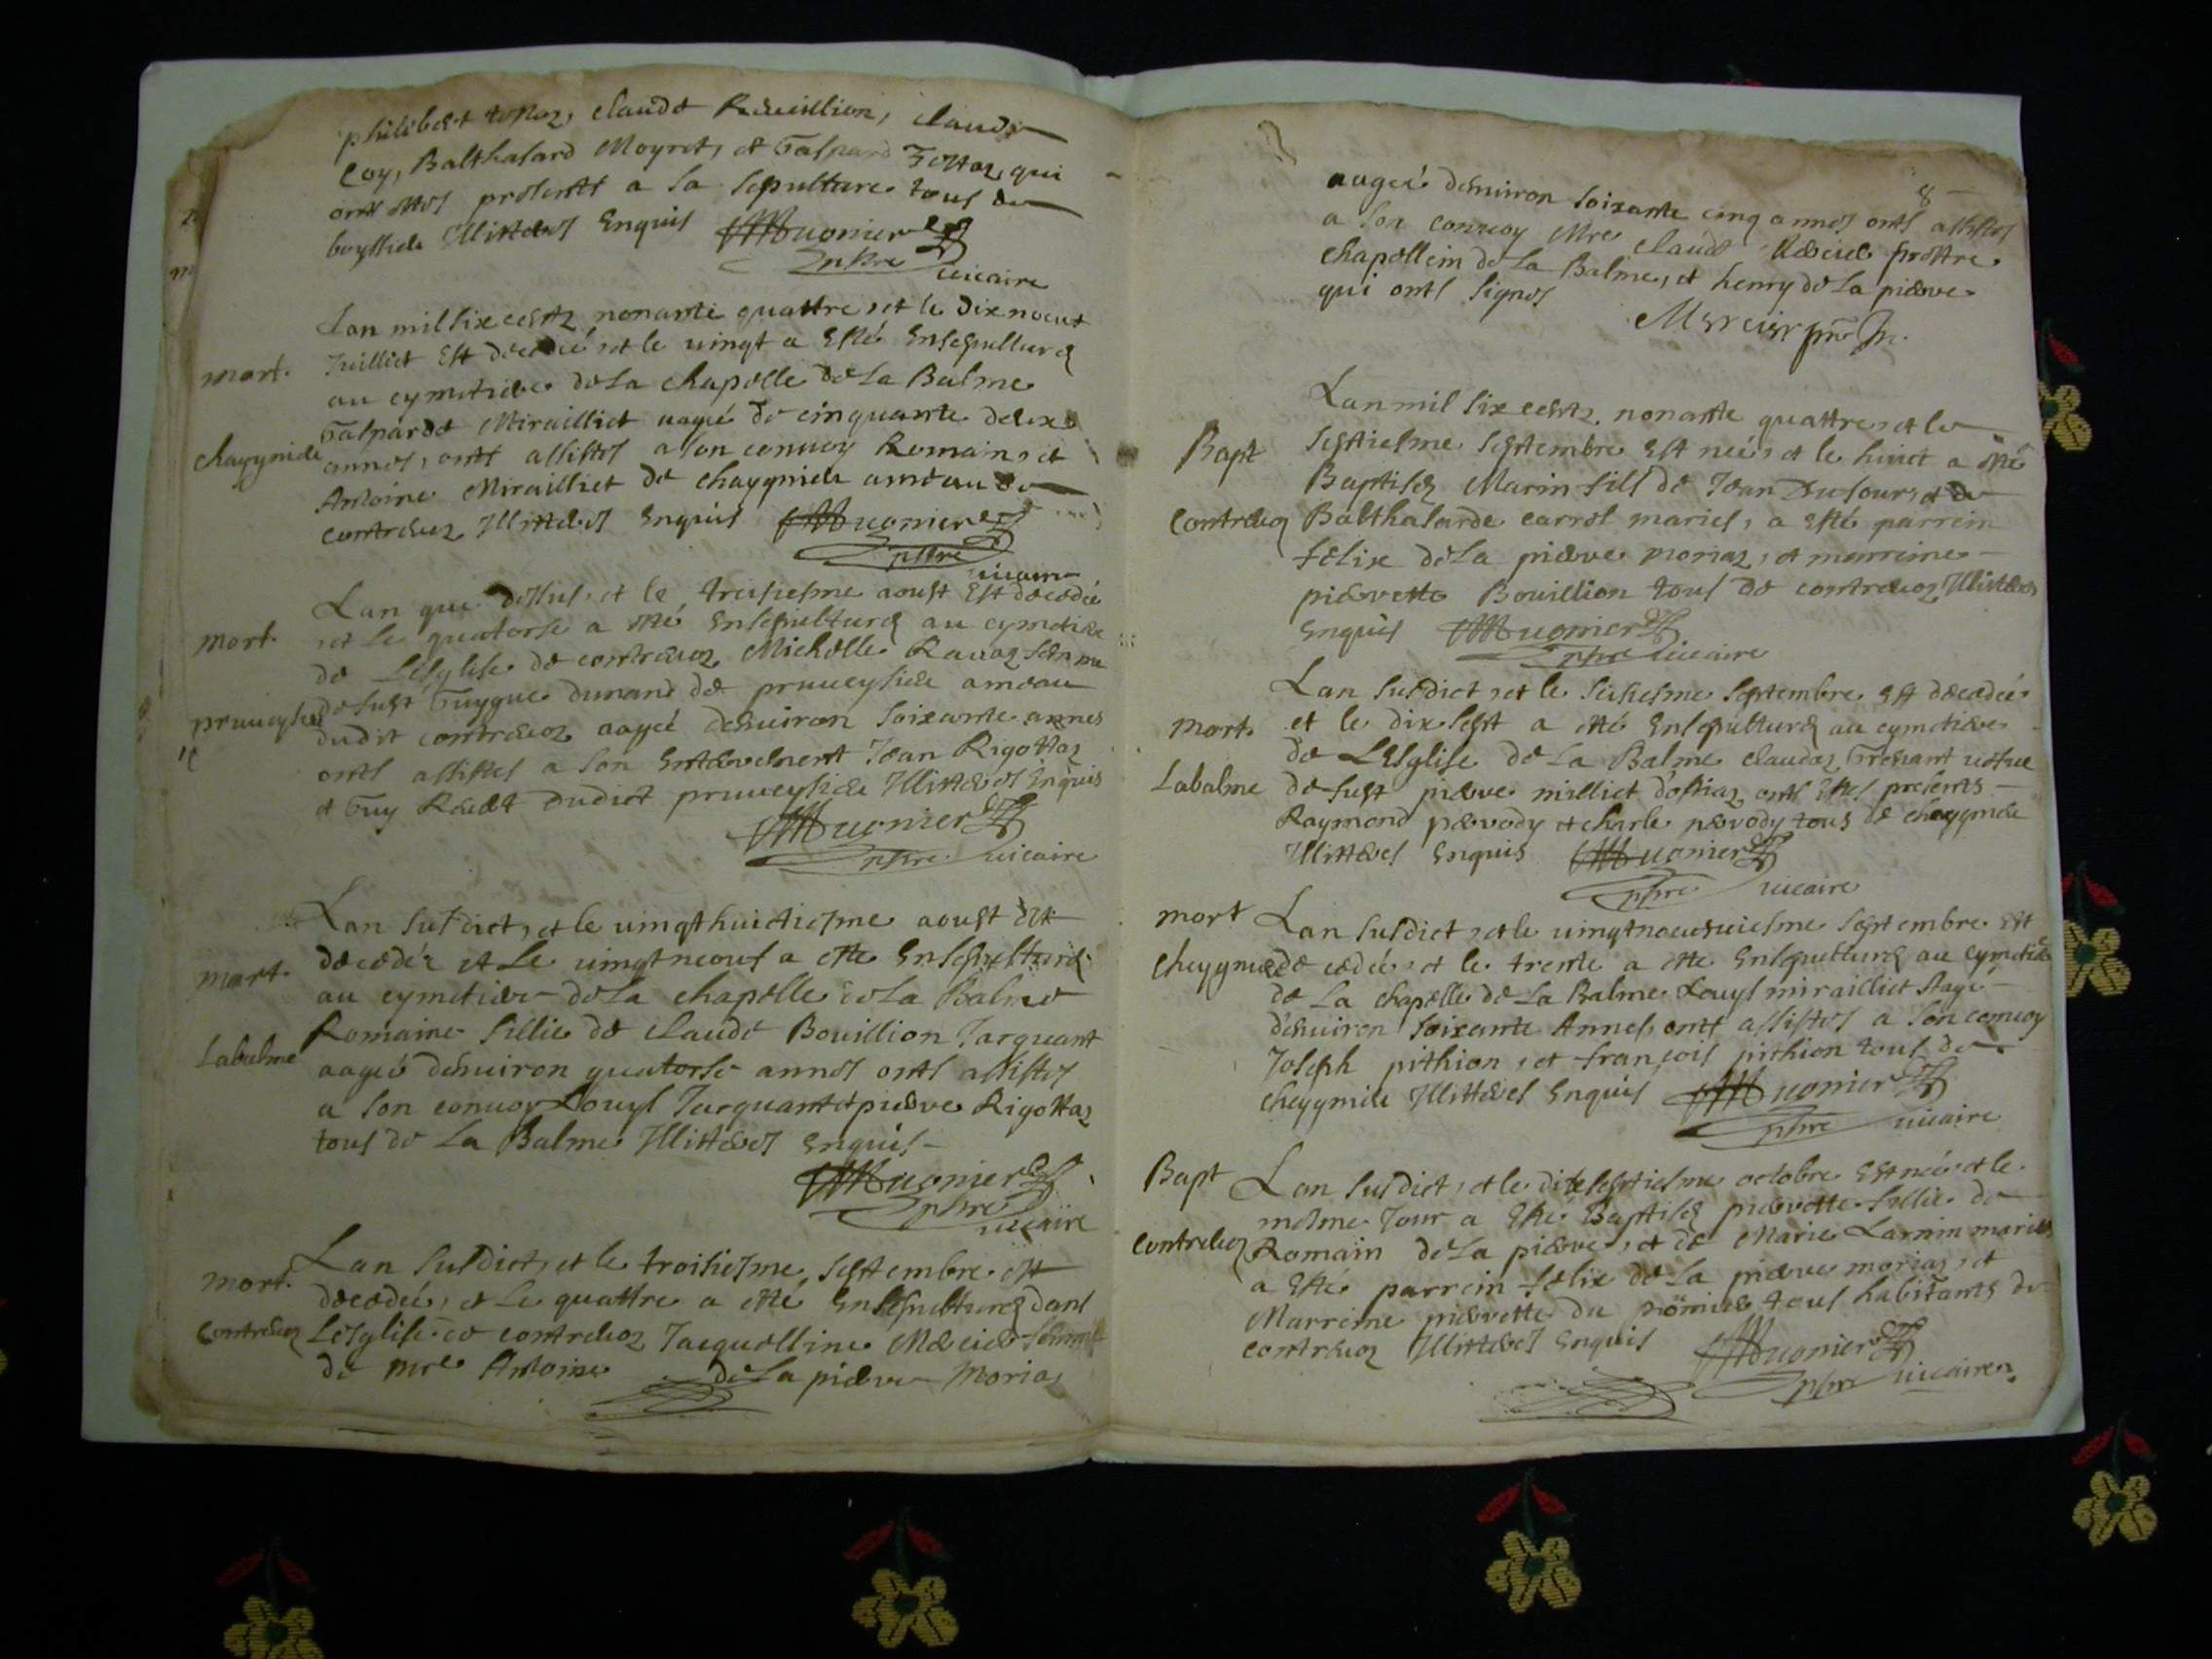 philibert tossoz, claude Reveillion, claude
Coy, Balthasard Moyret, et Gaspard Tottaz, qui
ont estes presentz a la sepulture tous de
boyssieu Illitteres Enquis Mugnier
pbre vicaire
Lan mil six centz nonante quattre, et le dix noeuf
Juilliet Est decedé, et le vingt a Esté Ensepulturez
mort. au cymetiere de La chapelle de La Balme
Gasparde Mirailliet aagé de cinquante deux
chaygnieu annes, ontt assistes a son convoy Romain, et
Antoine Mirailliet de chaygnieu ameau de
contrevoz Illitteres Enquis Mugnier
pbre
vicaire
Lan que dessus, et le treisiesme aoust Est decedée
mort. et le quatorse a esté Ensepulturez au cymetiere
de LEsglise de contrevoz Michelle Ravaz femme
pruveysieu de fust Guygue dunand de pruveysieu ameau
dudit contrevoz aagée denviron soixante annes
onts assistes a son Enterrement Jean Rigottaz
et Guy Revet dudict pruveysieu Illitteres Enquis
Mugnier
pbre vicaire
Lan susdict, et le vingthuictiesme aoust est
mort. decedée et Le vingtneouf a esté Ensepulturez
au cymetiere de La chapelle de La Balme
Romaine fillie de claude Bouillion Jarquant
Labalme aageé denviron quatorse annes onts assistes
a son convoy Louys Jarquant et pierre Rigottaz
tous de La Balme Illitteres Enquis
Mugnier
pbre
vicaire
Lan susdict, et le troisiesme septembre est
mort. decedée, et Le quattre a esté Ensepulturez dans
Contrevoz LEsglise de contrevoz Jacquelline Mercier femme
de mre Antoine de La pierre Moriaz
8
aageé denviron soixante cinq annes onts assistes
a son convoy Mre claude Mercier prestre
chapellein de La Balme, et henry de La pierre
qui onts signes
Mercier pre
Lan mil six centz nonante quattre, et le
Bapt septiesme septembre Est neé, et le huict a esté
Baptisez Marin fils de Jean Dufour, et de
Contrevoz Balthasarde carrel maries, a esté parrein
felix de La pierre moriaz, et marreine
pierrette Bouillion tous de contrevoz Illitteres
Enquis Mugnier
pbre vicaire
Lan susdict, et le seisiesme septembre Est decedée
mort. et le dix sept a esté Ensepulturez au cymetiere
de LEsglise de La Balme claudaz Trenant veufve
Labalme de fust pierre milliet dostiaz onts Estes presents
Raymond pervody et charle pervody tous de chaygnieu
Illitteres Enquis Mugnier
pbre vicaire
mort Lan susdict, et le vingtnoeuviesme septembre Est
cheygnieu decedée, et le trente a este Ensepulturez au cymetiere
de La chapelle de La Balme Louys mirailliet Aagé
denviron soixante Annes, onts assistes a son convoy
Joseph pithion, et françois pithion tous de
cheygnieu Illitteres Enquis Mugnier
pbre vicaire
Bapt Lan susdict, et le dix septiesme octobre Est neé et le
mesme Jour a Esté Baptisez pierrette fillie de
Contrevoz Romain de La pierre, et de Marie Larnin maries
a Esté parrein felix de La pierre moriaz, et
Marreine pierrette du promier tous habitants de
contrevoz Illitteres Enquis Mugnier
pbre vicaire